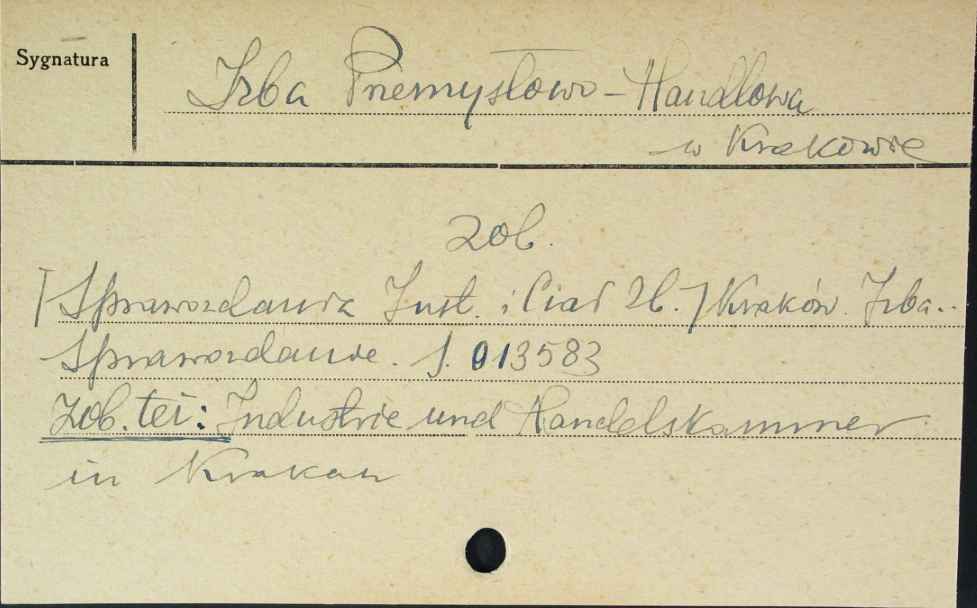 Sygnatura
Izba Przemysłowo-Handlowa
w Krakowie
zob.
[Sprawozdania Inst. i Ciał Zb.] Kraków. Izba..
Sprawozdanie. S. 013583
Zob. też: Industrie und Handelskammer
in Krakau